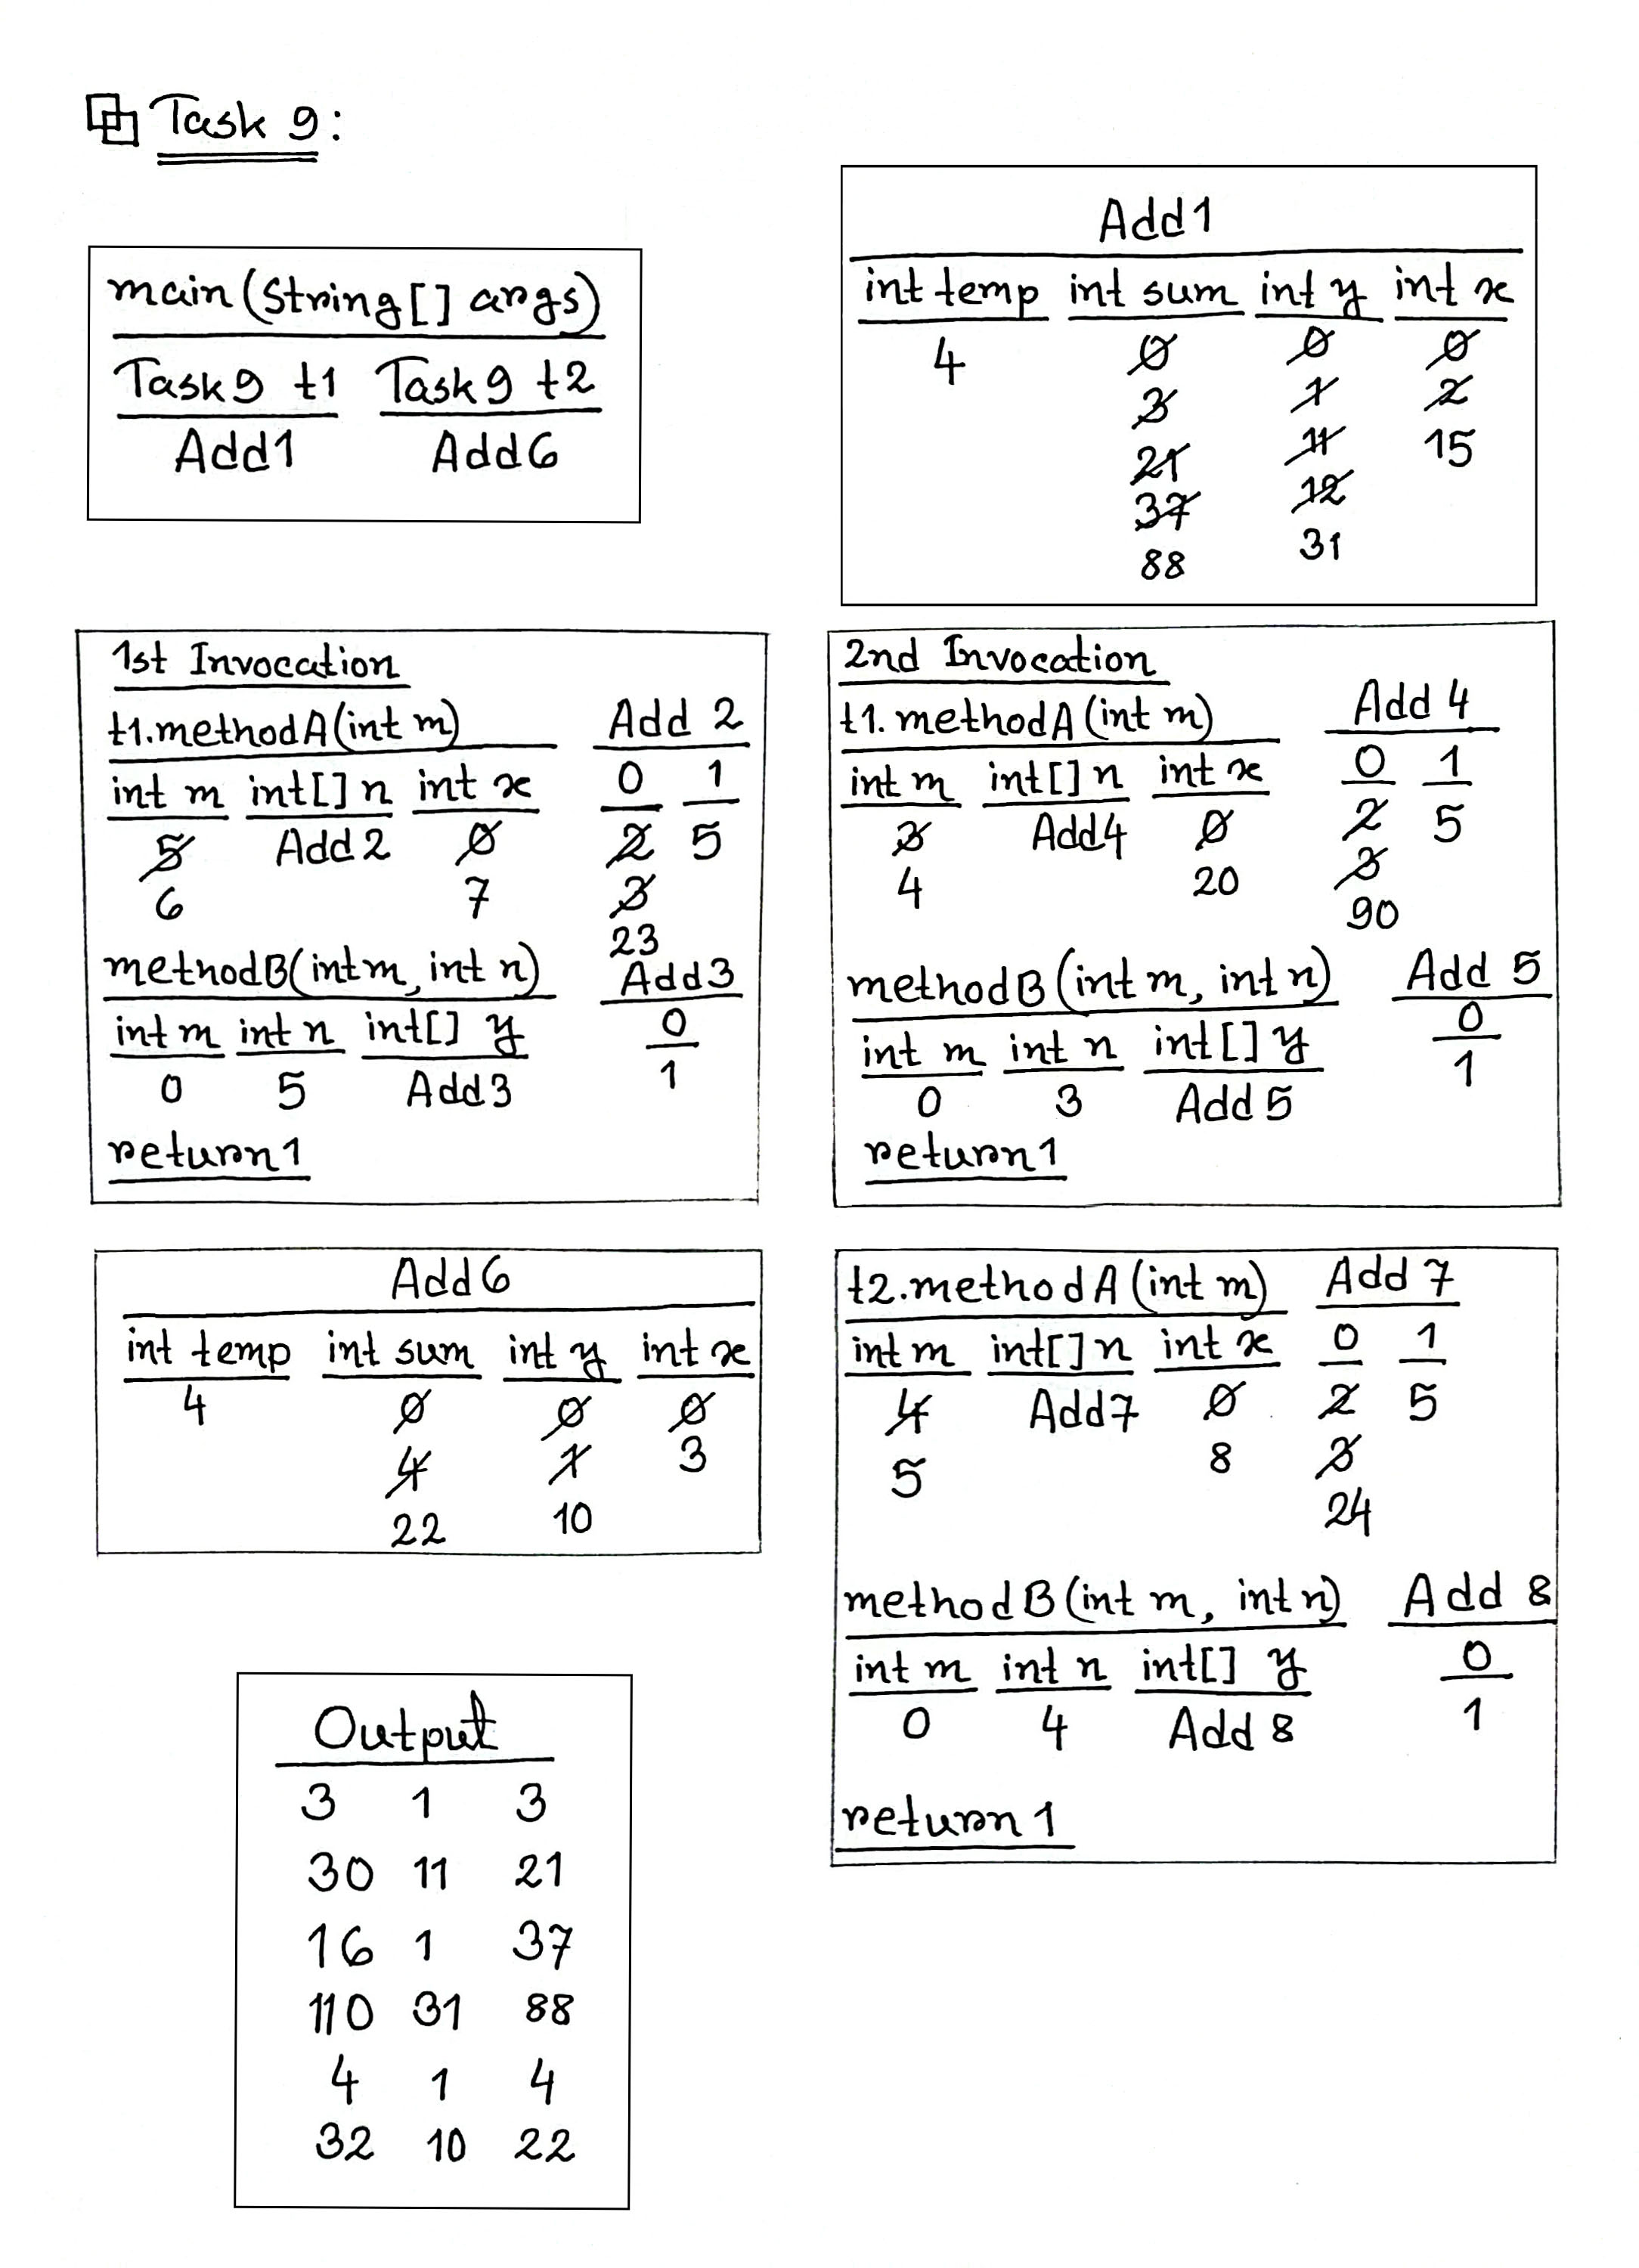 Task 9:
main(String[] args)
Task9 t1 Task9 t2
Add1 Add6
Add1
int temp int sum int y int x
4 0 0 0
3 1 2
21 11 15
37 12
88 31
1st Invocation
t1.methodA(int m) Add 2
int m int[] n int x 0 1
5 Add2 0 2 5
6 7 3
23
methodB(int m, int n) Add3
int m int n int[] y 0
0 5 Add3 1
return 1
2nd Invocation
t1.methodA(int m) Add 4
int m int[] n int x 0 1
3 Add4 0 2 5
4 20 3
90
methodB(int m, int n) Add 5
int m int n int[] y 0
0 3 Add5 1
return 1
Add6
int temp int sum int y int x
4 0 0 0
4 1 3
22 10
t2.methodA(int m) Add 7
int m int[] n int x 0 1
4 Add7 0 2 5
5 8 3
24
methodB(int m, int n) Add 8
int m int n int[] y 0
0 4 Add 8 1
return 1
Output
3 1 3
30 11 21
16 1 37
110 31 88
4 1 4
32 10 22